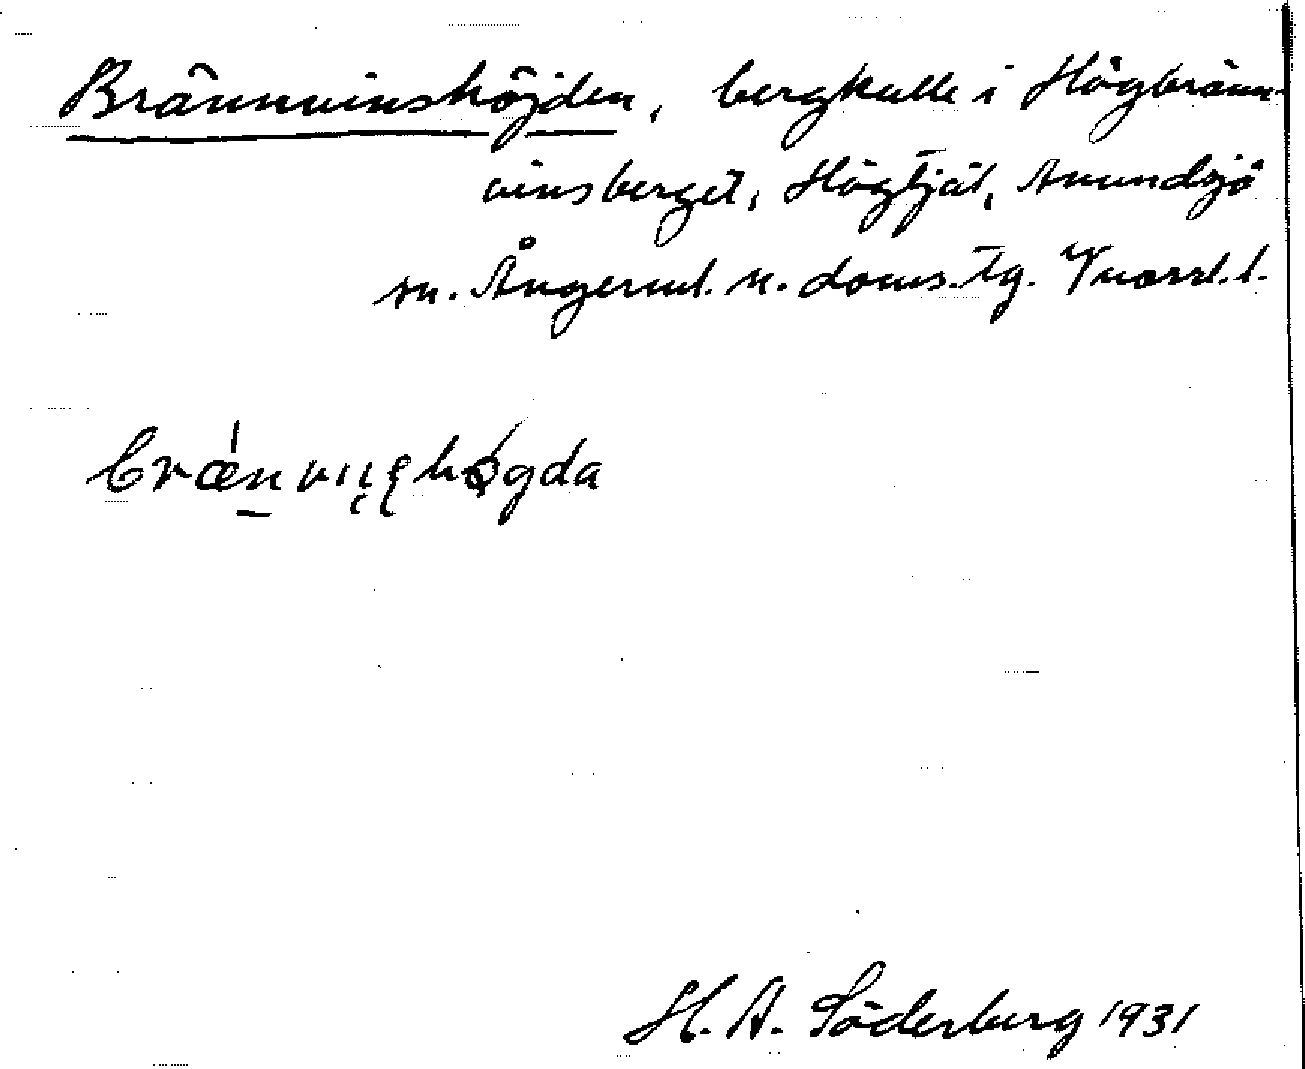 Brännvinshöjden, bergkulle i Högbränn-
vinsberget, Högtjäl, Anundsjö
sn. Ångerml. n. doms. tg. Vnorrl. l.
H. A. Söderberg 1931